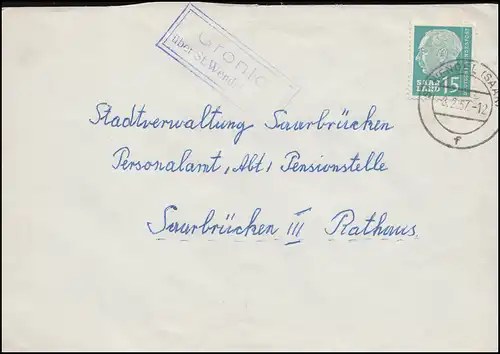 Gronig
über St. Wendel
SAAR
LAND 15
WENDEL (SAAR)
8.2.57-12
f
Stadtverwaltung Saarbrücken
Personalamt, Abt. Pensionstelle
Saarbrücken III Rathaus.